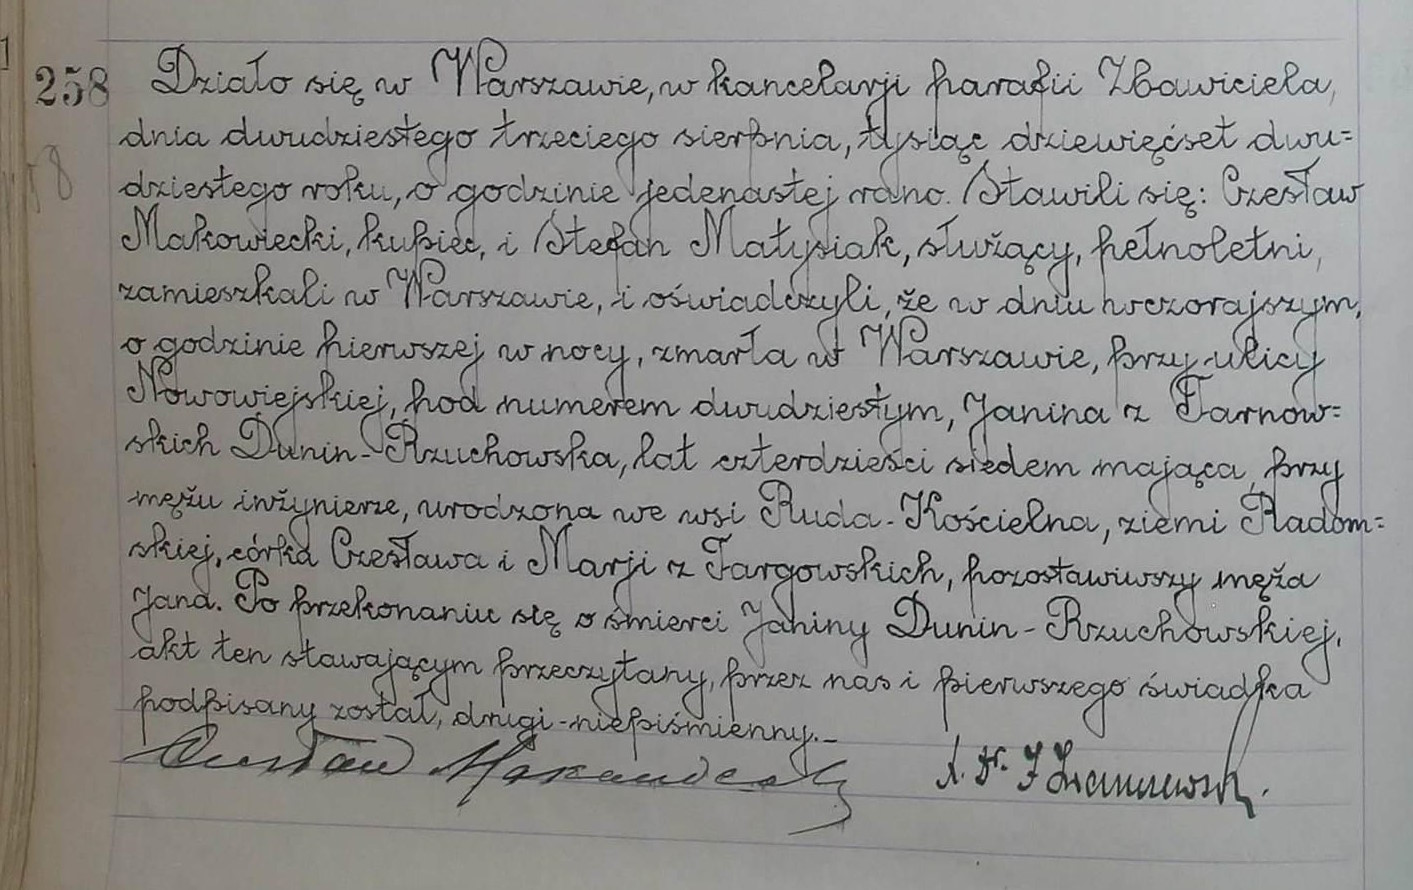 258 Działo się w Warszawie, w kancelarji parafii Zbawiciela,
dnia dwudziestego trzeciego sierpnia, tysiąc dziewięćset dwu=
dziestego roku, o godzinie jedenastej rano. Stawili się: Czesław
Makowiecki, kupiec, i Stefan Matysiak, służący, pełnoletni,
zamieszkali w Warszawie, i oświadczyli, że w dniu wczorajszym,
o godzinie pierwszej w nocy, zmarła w Warszawie, przy ulicy
Nowowiejskiej, pod numerem dwudziestym, Janina z Tarnow=
skich Dunin-Rzuchowska, lat czterdzieści siedem mająca, przy
mężu inżynierze, urodzona we wsi Ruda-Kościelna, ziemi Radom=
skiej, córka Czesława i Marji z Targowskich, pozostawiwszy męża
Jana. Po przekonaniu się o śmierci Janiny Dunin-Rzuchowskiej,
akt ten stawającym przeczytany, przez nas i pierwszego świadka
podpisany został, drugi-niepiśmienny.-
Czesław Makowiecki